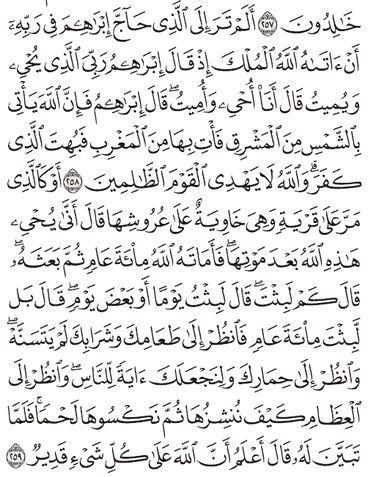 خَٰلِدُونَ ٢٥٧ أَلَمْ تَرَ إِلَى ٱلَّذِى حَآجَّ إِبْرَٰهِـۧمَ فِى رَبِّهِۦٓ
أَنْ ءَاتَىٰهُ ٱللَّهُ ٱلْمُلْكَ إِذْ قَالَ إِبْرَٰهِـۧمُ رَبِّىَ ٱلَّذِى يُحْىِۦ
وَيُمِيتُ قَالَ أَنَا۠ أُحْىِۦ وَأُمِيتُ ۖ قَالَ إِبْرَٰهِـۧمُ فَإِنَّ ٱللَّهَ يَأْتِى
بِٱلشَّمْسِ مِنَ ٱلْمَشْرِقِ فَأْتِ بِهَا مِنَ ٱلْمَغْرِبِ فَبُهِتَ ٱلَّذِى
كَفَرَ ۗ وَٱللَّهُ لَا يَهْدِى ٱلْقَوْمَ ٱلظَّٰلِمِينَ ٢٥٨ أَوْ كَٱلَّذِى
مَرَّ عَلَىٰ قَرْيَةٍ وَهِىَ خَاوِيَةٌ عَلَىٰ عُرُوشِهَا قَالَ أَنَّىٰ يُحْىِۦ
هَٰذِهِ ٱللَّهُ بَعْدَ مَوْتِهَا ۖ فَأَمَاتَهُ ٱللَّهُ مِا۟ئَةَ عَامٍ ثُمَّ بَعَثَهُۥ ۖ
قَالَ كَمْ لَبِثْتَ ۖ قَالَ لَبِثْتُ يَوْمًا أَوْ بَعْضَ يَوْمٍ ۖ قَالَ بَل
لَّبِثْتَ مِا۟ئَةَ عَامٍ فَٱنظُرْ إِلَىٰ طَعَامِكَ وَشَرَابِكَ لَمْ يَتَسَنَّهْ ۖ
وَٱنظُرْ إِلَىٰ حِمَارِكَ وَلِنَجْعَلَكَ ءَايَةً لِّلنَّاسِ ۖ وَٱنظُرْ إِلَى
ٱلْعِظَامِ كَيْفَ نُنشِزُهَا ثُمَّ نَكْسُوهَا لَحْمًا ۚ فَلَمَّا
تَبَيَّنَ لَهُۥ قَالَ أَعْلَمُ أَنَّ ٱللَّهَ عَلَىٰ كُلِّ شَىْءٍ قَدِيرٌ ٢٥٩